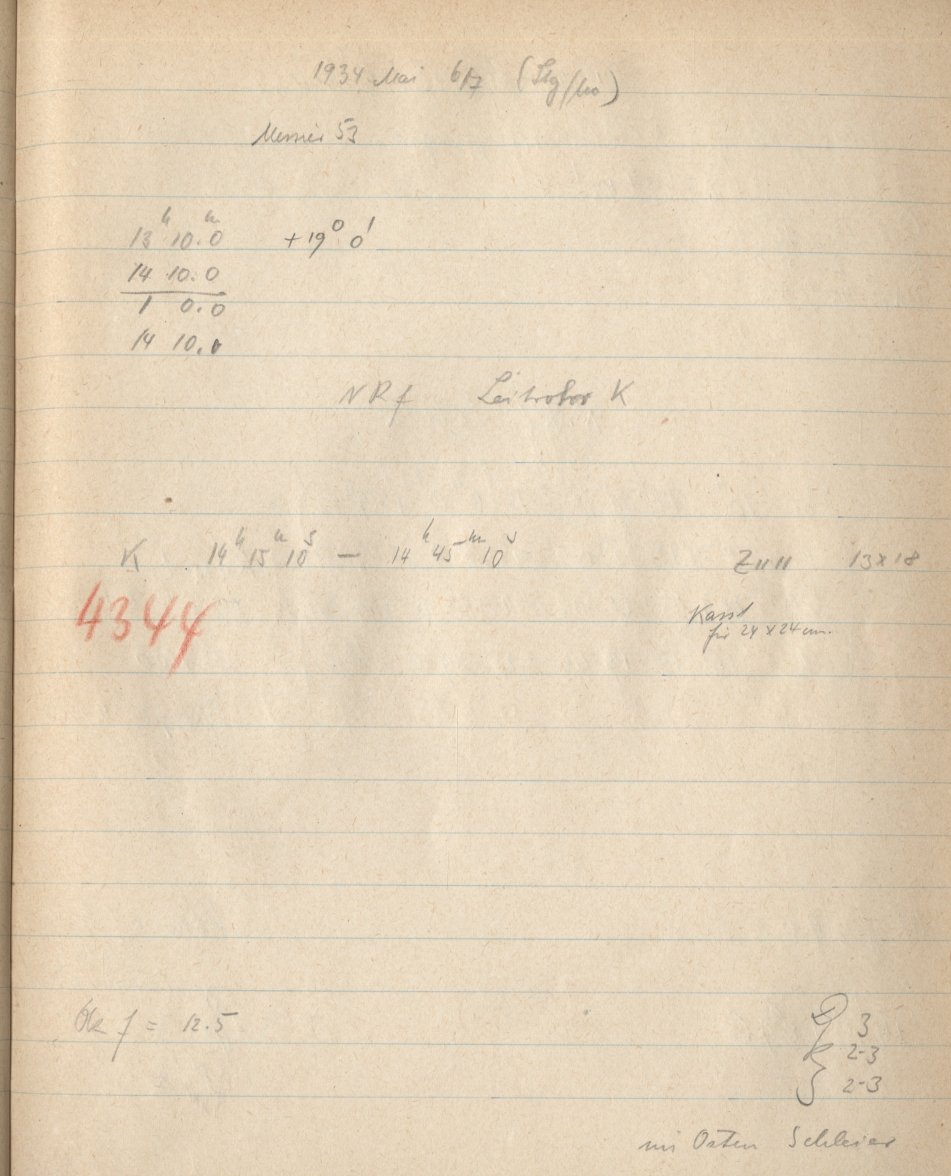 1934 Mai 6/7 (Stg/Mo)
Messier 53
13ʰ 10.ᵐ0 +19⁰ 0'
14 10.0
1 0.0
14 10.0
NRf Leitrohr K
K 14ʰ 15ᵐ 10ˢ — 14ʰ 45ᵐ 10ˢ 13x18
4344 Kass
für 24 x 24 cm.
f = 12.5
3
2-3
2-3
im Osten Schleier